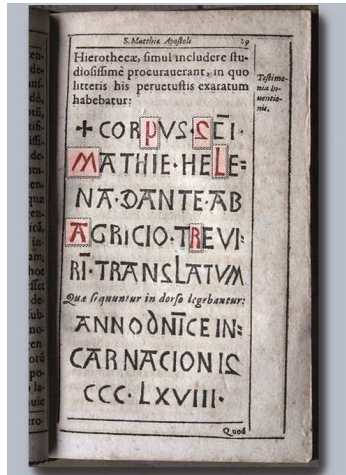 S. Matthiæ Apostoli 29
Hierothecæ, simul includere stu-
diosissimè procurauerant, in quo
litteris his peruetustis exaratum
habebatur:
Testimo-
nia in-
uentio-
nis.
+ CORPVS· SC̄I·
MATHIE· HELE=
NA· DANTE· AB
AGRICIO· TREVI=
RĪ· TRANSLATVM
Quæ sequuntur in dorso legebantur:
ANNO DNĪCE IN=
CARNACIONIS
CCC· LXVIII·
Quod